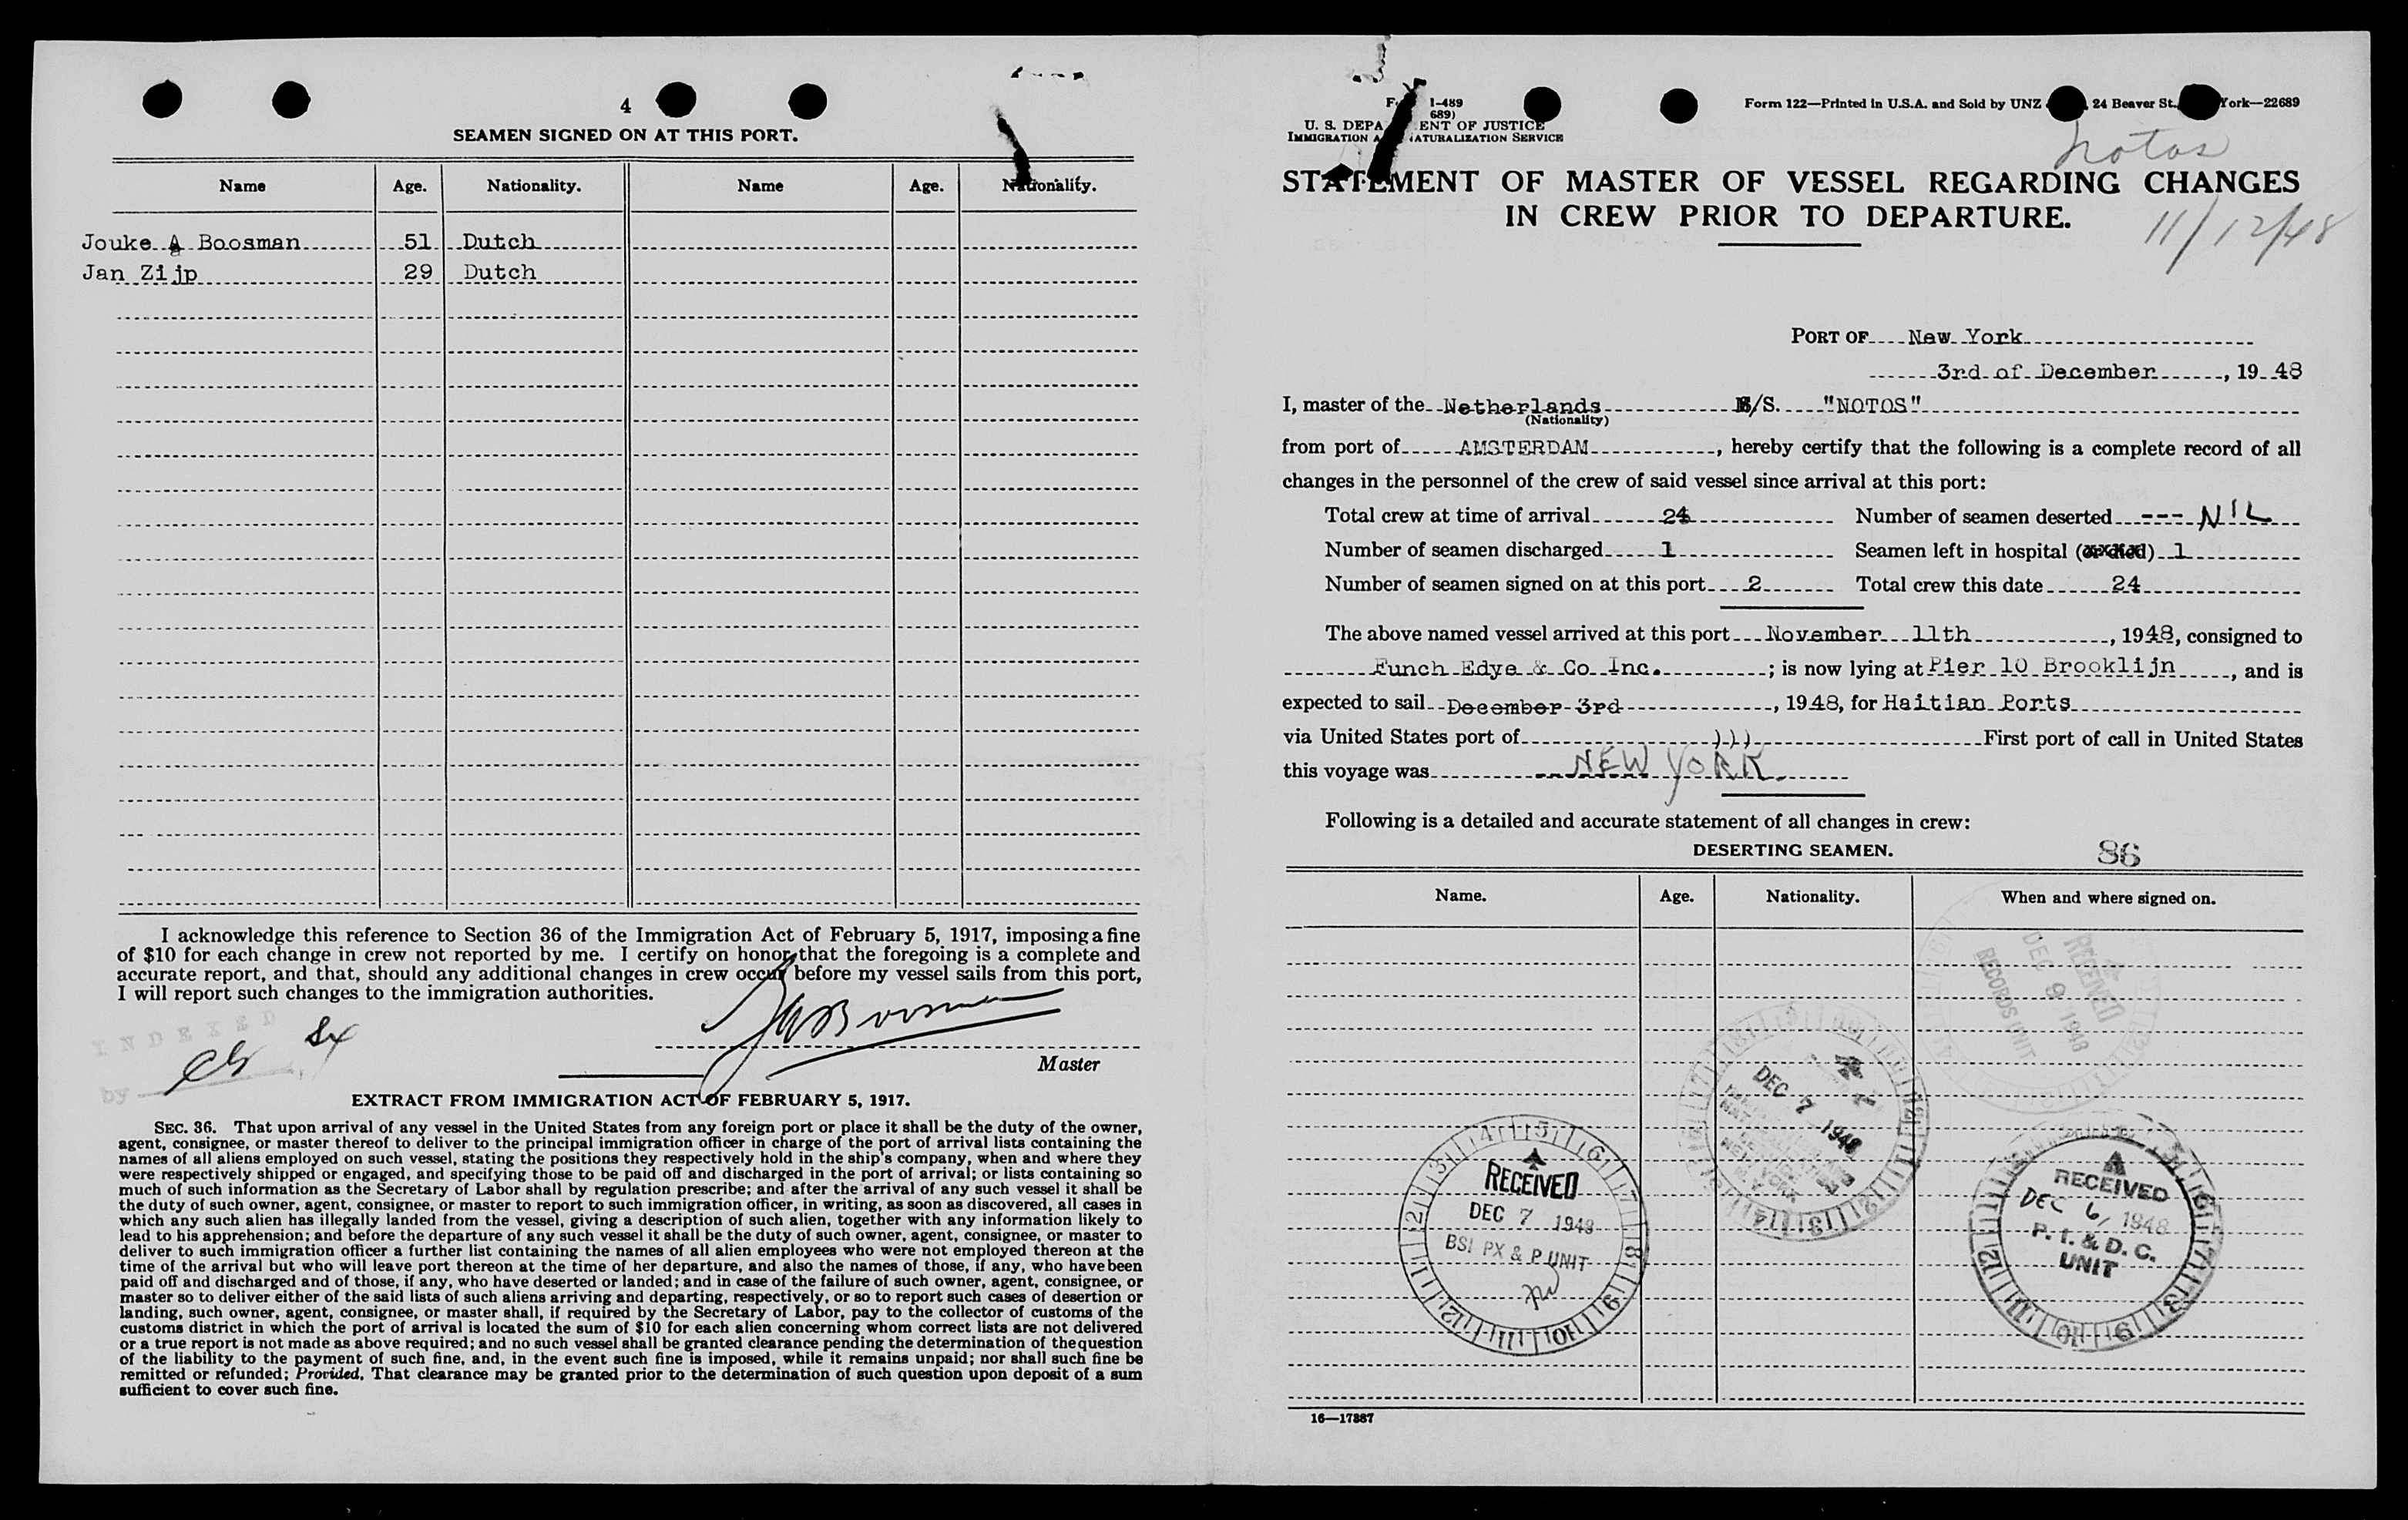 4
SEAMEN SIGNED ON AT THIS PORT.
Name Age. Nationality. Name Age. Nationality.
Jouke A Boosman 51 Dutch
Jan Zijp 29 Dutch
I acknowledge this reference to Section 36 of the Immigration Act of February 5, 1917, imposing a fine
of $10 for each change in crew not reported by me. I certify on honor that the foregoing is a complete and
accurate report, and that, should any additional changes in crew occur before my vessel sails from this port,
I will report such changes to the immigration authorities.
INDEXED
by
Master
EXTRACT FROM IMMIGRATION ACT OF FEBRUARY 5, 1917.
SEC. 36. That upon arrival of any vessel in the United States from any foreign port or place it shall be the duty of the owner,
agent, consignee, or master thereof to deliver to the principal immigration officer in charge of the port of arrival lists containing the
names of all aliens employed on such vessel, stating the positions they respectively hold in the ship's company, when and where they
were respectively shipped or engaged, and specifying those to be paid off and discharged in the port of arrival; or lists containing so
much of such information as the Secretary of Labor shall by regulation prescribe; and after the arrival of any such vessel it shall be
the duty of such owner, agent, consignee, or master to report to such immigration officer, in writing, as soon as discovered, all cases in
which any such alien has illegally landed from the vessel, giving a description of such alien, together with any information likely to
lead to his apprehension; and before the departure of any such vessel it shall be the duty of such owner, agent, consignee, or master to
deliver to such immigration officer a further list containing the names of all alien employees who were not employed thereon at the
time of the arrival but who will leave port thereon at the time of her departure, and also the names of those, if any, who have been
paid off and discharged and of those, if any, who have deserted or landed; and in case of the failure of such owner, agent, consignee, or
master so to deliver either of the said lists of such aliens arriving and departing, respectively, or so to report such cases of desertion or
landing, such owner, agent, consignee, or master shall, if required by the Secretary of Labor, pay to the collector of customs of the
customs district in which the port of arrival is located the sum of $10 for each alien concerning whom correct lists are not delivered
or a true report is not made as above required; and no such vessel shall be granted clearance pending the determination of the question
of the liability to the payment of such fine, and, in the event such fine is imposed, while it remains unpaid; nor shall such fine be
remitted or refunded; Provided, That clearance may be granted prior to the determination of such question upon deposit of a sum
sufficient to cover such fine.
1-489
689)
U. S. DEPA ENT OF JUSTICE
IMMIGRATION A NATURALIZATION SERVICE
Form 122—Printed in U.S.A. and Sold by UNZ 24 Beaver St. York—22689
Notos
STATEMENT OF MASTER OF VESSEL REGARDING CHANGES
IN CREW PRIOR TO DEPARTURE.
11/12/48
PORT OF New York
3rd of December, 19 48
I, master of the Netherlands M/S. "NOTOS"
(Nationality)
from port of AMSTERDAM, hereby certify that the following is a complete record of all
changes in the personnel of the crew of said vessel since arrival at this port:
Total crew at time of arrival 24 Number of seamen deserted --- NIL
Number of seamen discharged 1 Seamen left in hospital (or died) 1
Number of seamen signed on at this port 2 Total crew this date 24
The above named vessel arrived at this port November 11th, 1948, consigned to
Funch Edye & Co Inc.; is now lying at Pier 10 Brooklijn, and is
expected to sail December 3rd, 1948, for Haitian Ports
via United States port of ))) First port of call in United States
this voyage was NEW YORK
Following is a detailed and accurate statement of all changes in crew:
DESERTING SEAMEN.
86
Name. Age. Nationality. When and where signed on.
RECEIVED
DEC 9 1948
RECORDS UNIT
DEC 7 1948
RECEIVED
DEC 7 1948
BSI PX & P UNIT
RECEIVED
DEC 6, 1948
P. T. & D. C.
UNIT
16—17887